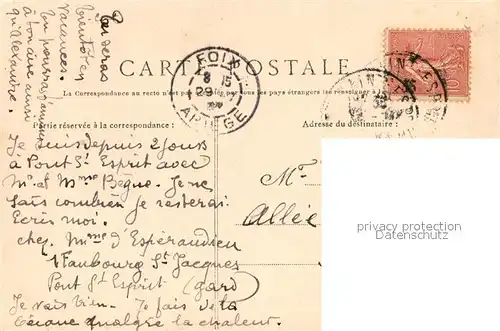 Tu seras
bientôt en
vacances.
Tu pourras t'amuser
à ton aise ainsi
qu'Alexandre.
CARTE POSTALE
La Correspondance au recto n'est pas acceptée par tous les pays étrangers (se renseigner à la poste)
FOIX
8 15
29
ARIEGE
Partie réservée à la correspondance :
Adresse du destinataire :
10
Je suis depuis 2 jours
à Pont St Esprit avec
Mr et Mme Bègue. Je ne
sais combien je resterai
Ecris moi.
chez Mme d'Espérandieu
1 Faubourg St Jacques
Pont St Esprit (gard)
Je vais bien. Je fais de la
malgré la chaleur.
Mr
Allée
privacy protection
Datenschutz